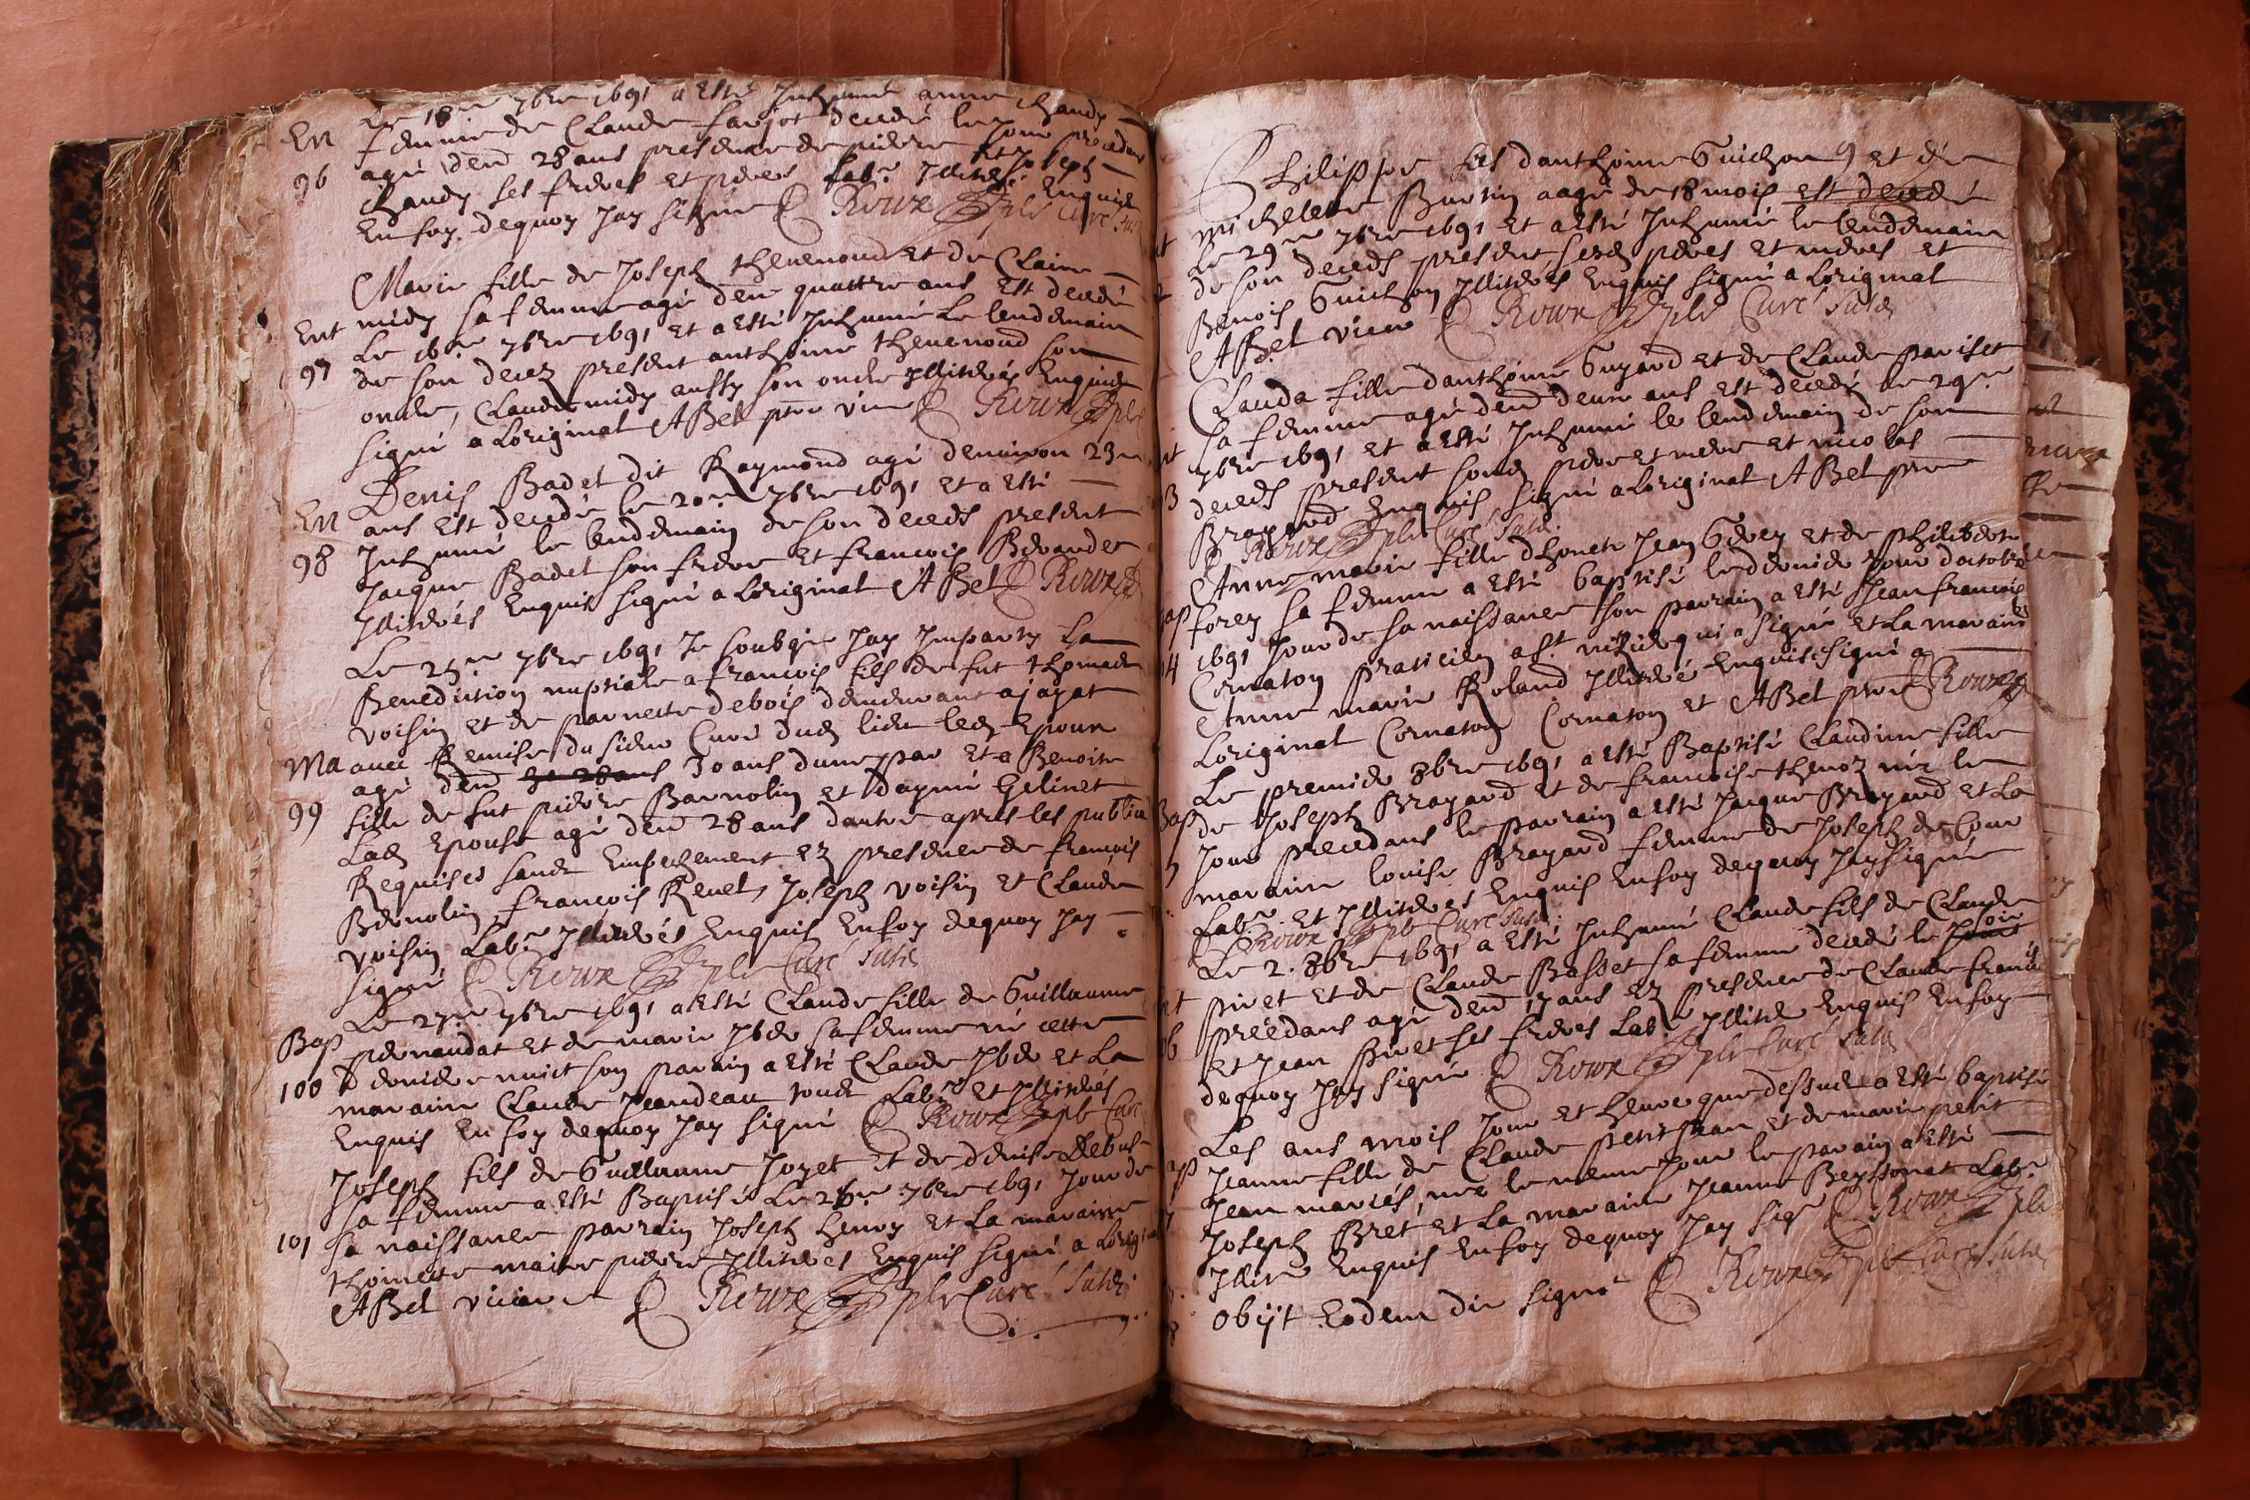 Le 18me 7bre 1691 a Esté Inhumé anne chandy
En femme de Claude farjot decedé le Jour precedant
96 agé denv 28 ans presence de pierre et Joseph
chandy ses freres et pere Labr Illiterés Enquis
En foy dequoy Jay signé Roux ptre Curé susd
Marie fille de Joseph thevenoud et de Claire
Ent midy sa femme agé denv quattre ans Est decedé
97 Le 16me 7bre 1691 Et a Esté Inhumé Le lendemain
de son decez present anthoine thevenoud son
oncle, Claude midy aussy son oncle Illiterés Enquis
signé a Loriginal ABel ptre vic Roux ptre
Denis Badet dit Raymond agé denviron 23
En ans Est decedé le 20me 7bre 1691 et a Esté
98 Inhumé le lendemain de son deceds present
Jacque Badet son frere Et francois
Illiterés Enquis signé a Loriginal ABel Roux
Le 25me 7bre 1691 Je soubsé Jay Imparty La
Benediction nuptiale a francois fils de fut thomas
voisin et de parnette debois demeurant a jayat
Ma avec Remise du sieur Curé dud lieu led Epoux
agé denv 30 ans dune par Et a Benoite
99 fille de fut pierre Barnolin et Daymé Gelinet
Lad Epouse agé denv 28 ans dautre apres les publica
Requises sans Empechement Ez presence de francois
Bernolin, françois Renel, Joseph voisin et Claude
voisin Labr Illiterés Enquis En foy dequoy Jay
signé Roux ptre Curé susd
Le 27me 7bre 1691 a Esté Claude fille de Guillaume
Bap pernaudat et de marie sa femme né cette
100 derniere nuict son parain a Esté Claude et La
maraine Claude Jeandeau tous Labr Et Illiterés
Enquis En foy dequoy Jay signé Roux ptre Curé
Joseph fils de Guillaume Joyet et de denise Debost
sa femme a Esté Baptisé Le 26me 7bre 1691 Jour de
101 sa naissance parrain Joseph henry et La maraine
thoinette maitre pierre Illiterés Enquis signé a Lorigi
ABel vicaire Roux ptre Curé susd
Philippe fils danthoine Guichon et de
michelette Burtin aagé de 18 mois est decedé
Le 29me 7bre 1691 Et a Esté Inhumé le lendemain
de son deceds present sesd peres et meres et
Benois Guichon Illiterés Enquis signé a Loriginal
ABel vicre Roux ptre Curé susd
Clauda fille danthoine Guyard et de Claude pariset
sa femme agé denv deux ans est decedé le 29me
7bre 1691 et a Esté Inhumé le lendemain de son
deceds present sond pere et mere et nicolas
Brayard Enquis signé a Loriginal ABel ptre
Roux ptre Curé susd
Anne marie fille dhonete Jean Gerey et de philiberte
forey sa femme a Esté baptisé le dernier Jour doctobre
1691 Jour de sa naissance son parrain a Esté Jean francois
Cornaton praticien a st nizier qui a signé et La maraine
Anne marie Roland Illiteré Enquise signé a
Loriginal Cornaton Cornaton et ABel ptre Roux
Le premier 8bre 1691 a Esté Baptisé Claudine fille
Bap de Joseph Brayard et de francoise thevoz née le
Jour precedans le parrain a Esté Jacque Brayard et La
maraine louise Brayard femme de Joseph de
Labr Et Illiterés Enquis En foy dequoy Jay signé
Roux ptre Curé susd
Le 2. 8bre 1691 a Esté Inhumé Claude fils de Claude
pivet Et de Claude Basset sa femme decedé le Jour
precedans agé denv 17 ans Ez presence de Claude francois
Et Jean pivet ses freres Labr Illiter Enquis En foy
dequoy Jay signé Roux ptre Curé susd
Les ans mois Jour et heure que dessus a Esté baptisé
Jeanne fille de Claude petit Jean et de marie petit
Jean mariés, née le meme Jour le parain a Esté
Joseph Bret, et La maraine Jeanne Labr
Illite Enquis En foy dequoy Jay sige Roux ptre
obijt Eodem die signé Roux ptre Curé susd